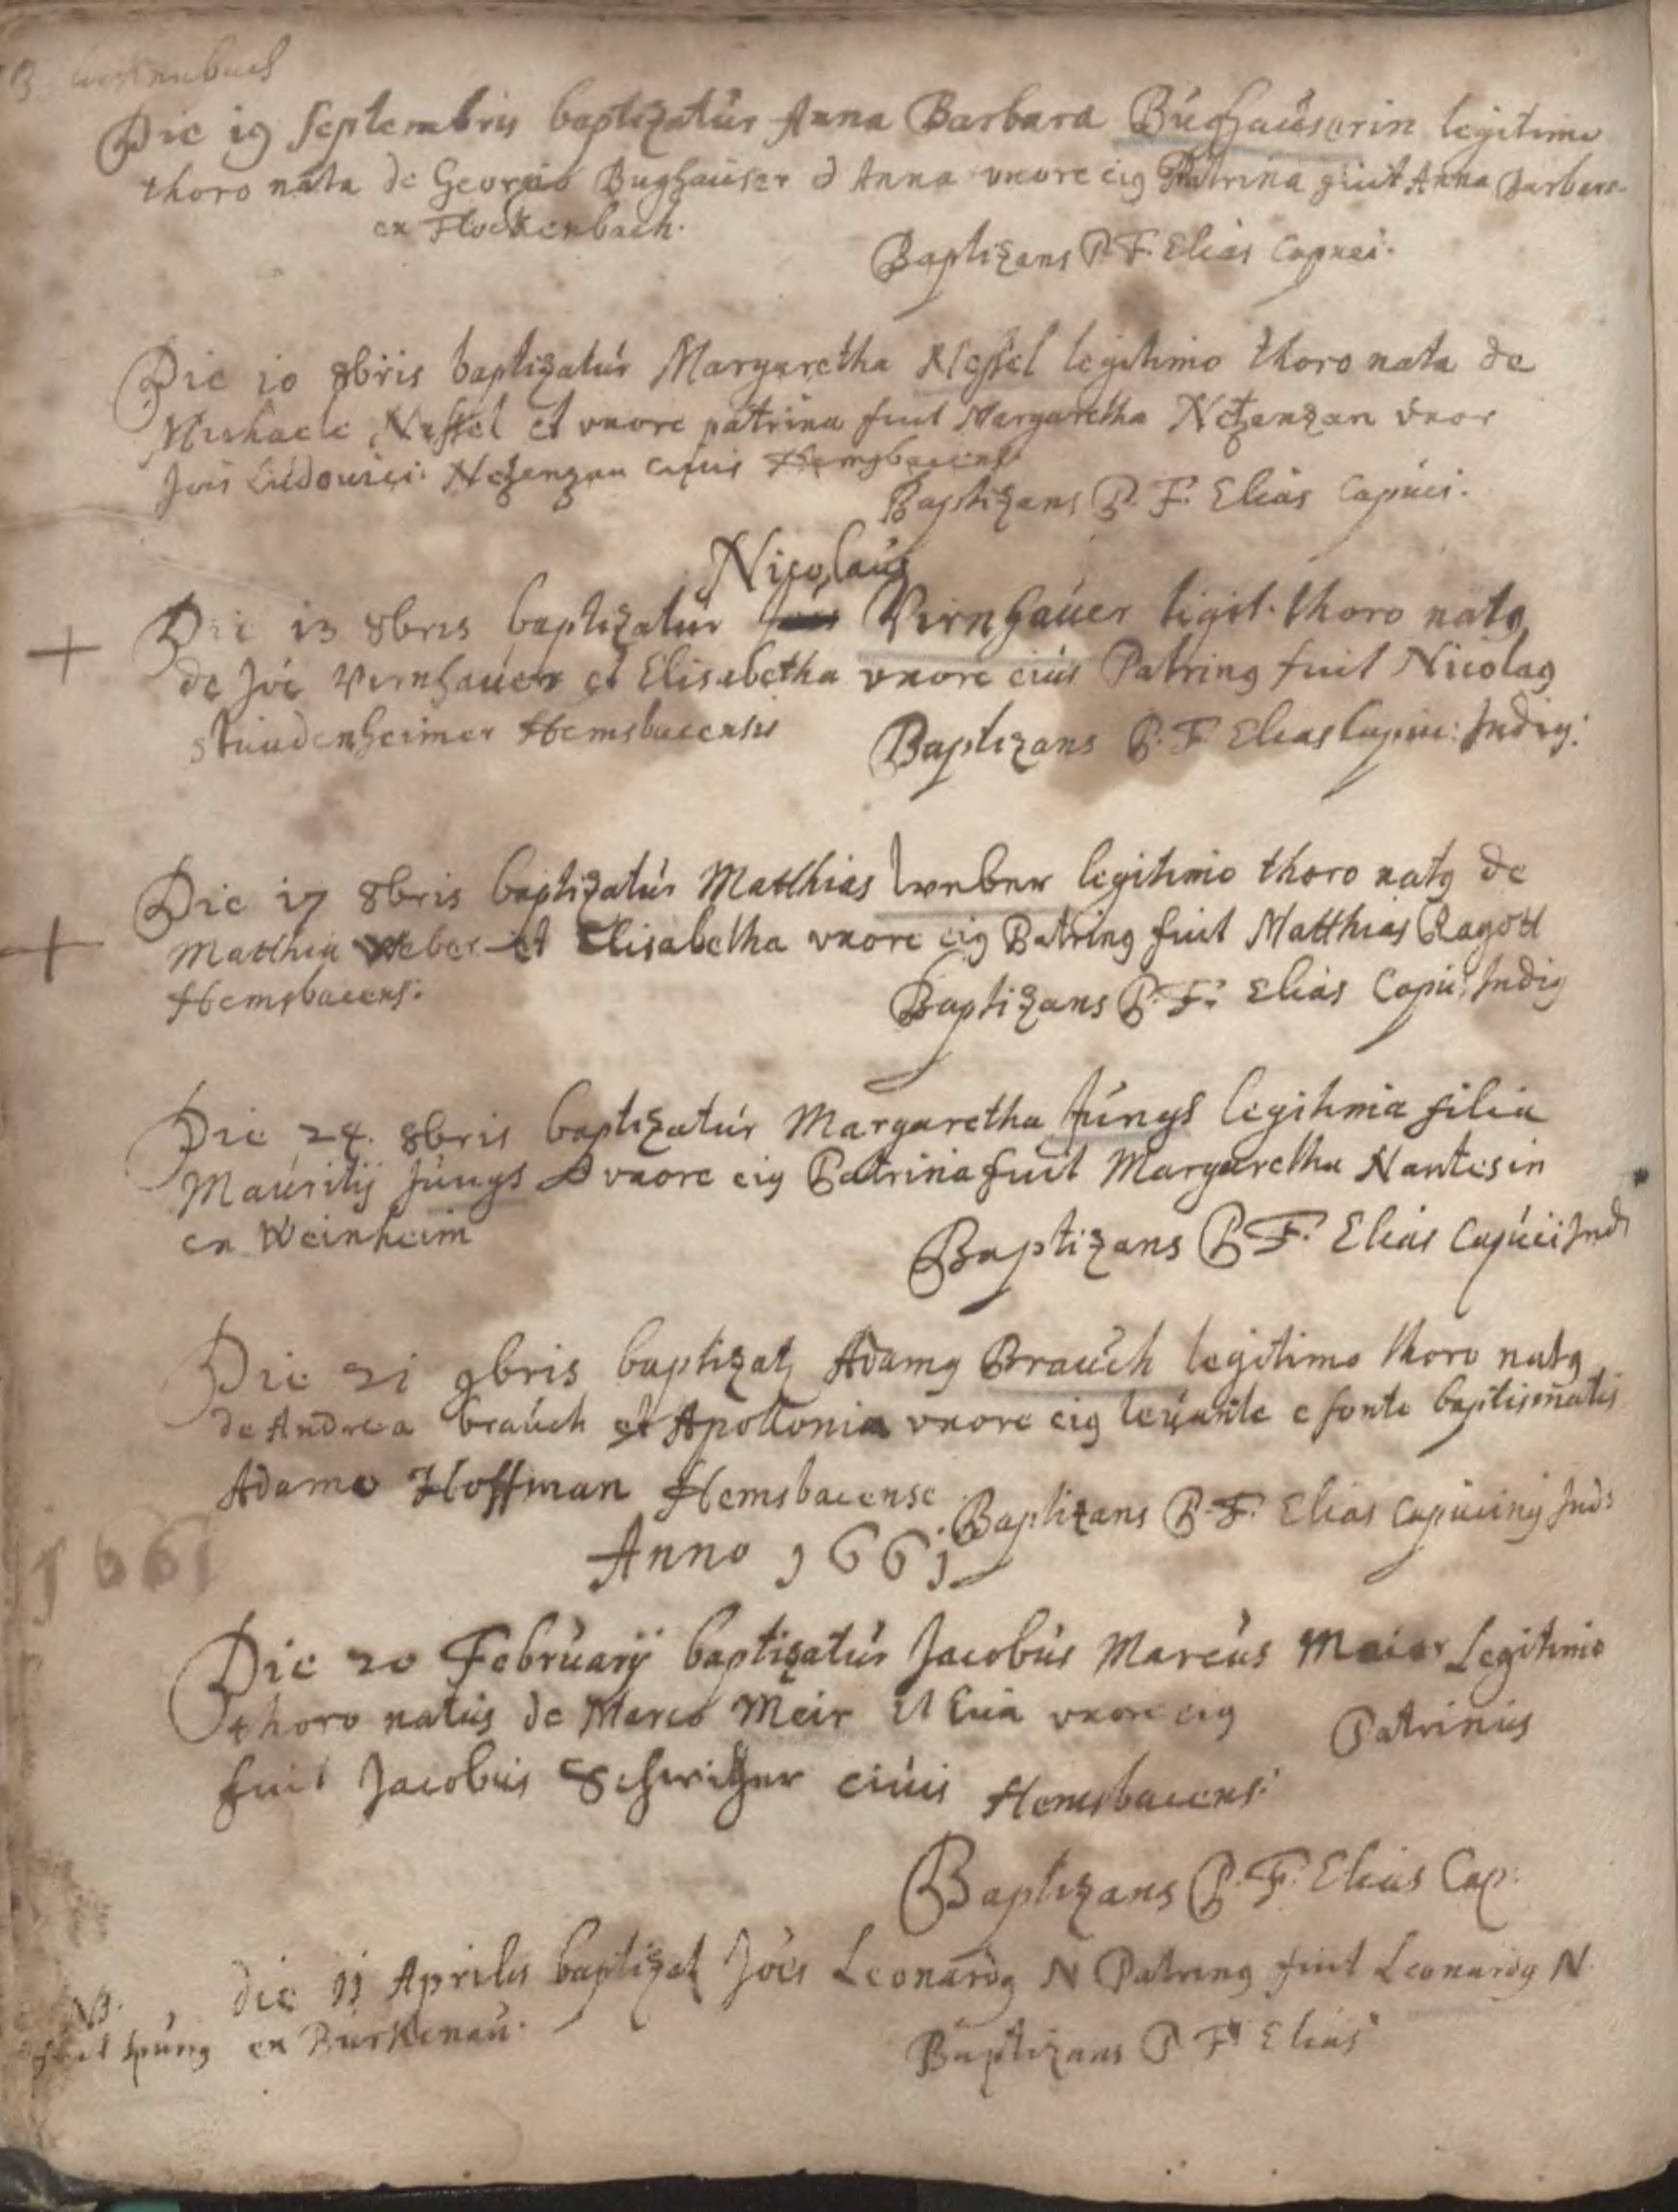 Die 19 Septembris baptizatur Anna Barbara Bughauserin legitimo
thoro nata de Georgio Bughauser et Anna uxore eig Patrina fuit Anna Barbara
ex Flockenbach.
Baptizans P. F. Elias Capuci.
Die 10 8bris baptizatur Margaretha Nessel legitimo thoro nata de
Michaele Nessel et uxore patrina fuit Margaretha Netzenzan uxor
Jois Ludovici Netzenzan civis Hemsbacens.
Baptizans P. F. Elias Capuci.
Nicolaus
Die 13 8bris baptizatur Virnhauer ligit. thoro natg
de Joe Virnhauer et Elisabetha uxore eius Patring fuit Nicolag
Studenheimer Hemsbacensis
Baptizans P. F. Elias Capuc: Indig:
Die 17 8bris baptizatur Matthias Weber legitimo thoro natg de
Matthia Weber et Elisabetha uxore eig Patring fuit Matthias Ragott
Hemsbacens:
Baptizans P. F. Elias Capu: Indig
Die 24. 8bris baptizatur Margaretha Jungs legitima filia
Mauritij Jungs et uxore eig Patrina fuit Margaretha Nantesin
ex Weinheim
Baptizans P F. Elias Capucii Ind
Die 21 9bris baptizat Adamg Brauch legitimo thoro natg
de Andrea Brauch et Apollonia uxore eig levante e fonte baptismatis
Adamo Hoffman Hemsbacense
Baptizans P. F. Elias Capucing Ind:
1661
Anno 1661
Die 20 Februarij baptizatur Jacobus Marcus Maier Legitimo
thoro natus de Marco Meir et Eva uxore eig Patrinus
fuit Jacobus Schwitzer civis Hemsbacens:
Baptizans P. F. Elias Cap:
NB. die 11 Aprilis baptizat Joes Leonardg N Patring fuit Leonardg N.
ex Burkenau.
Baptizans P F Elias